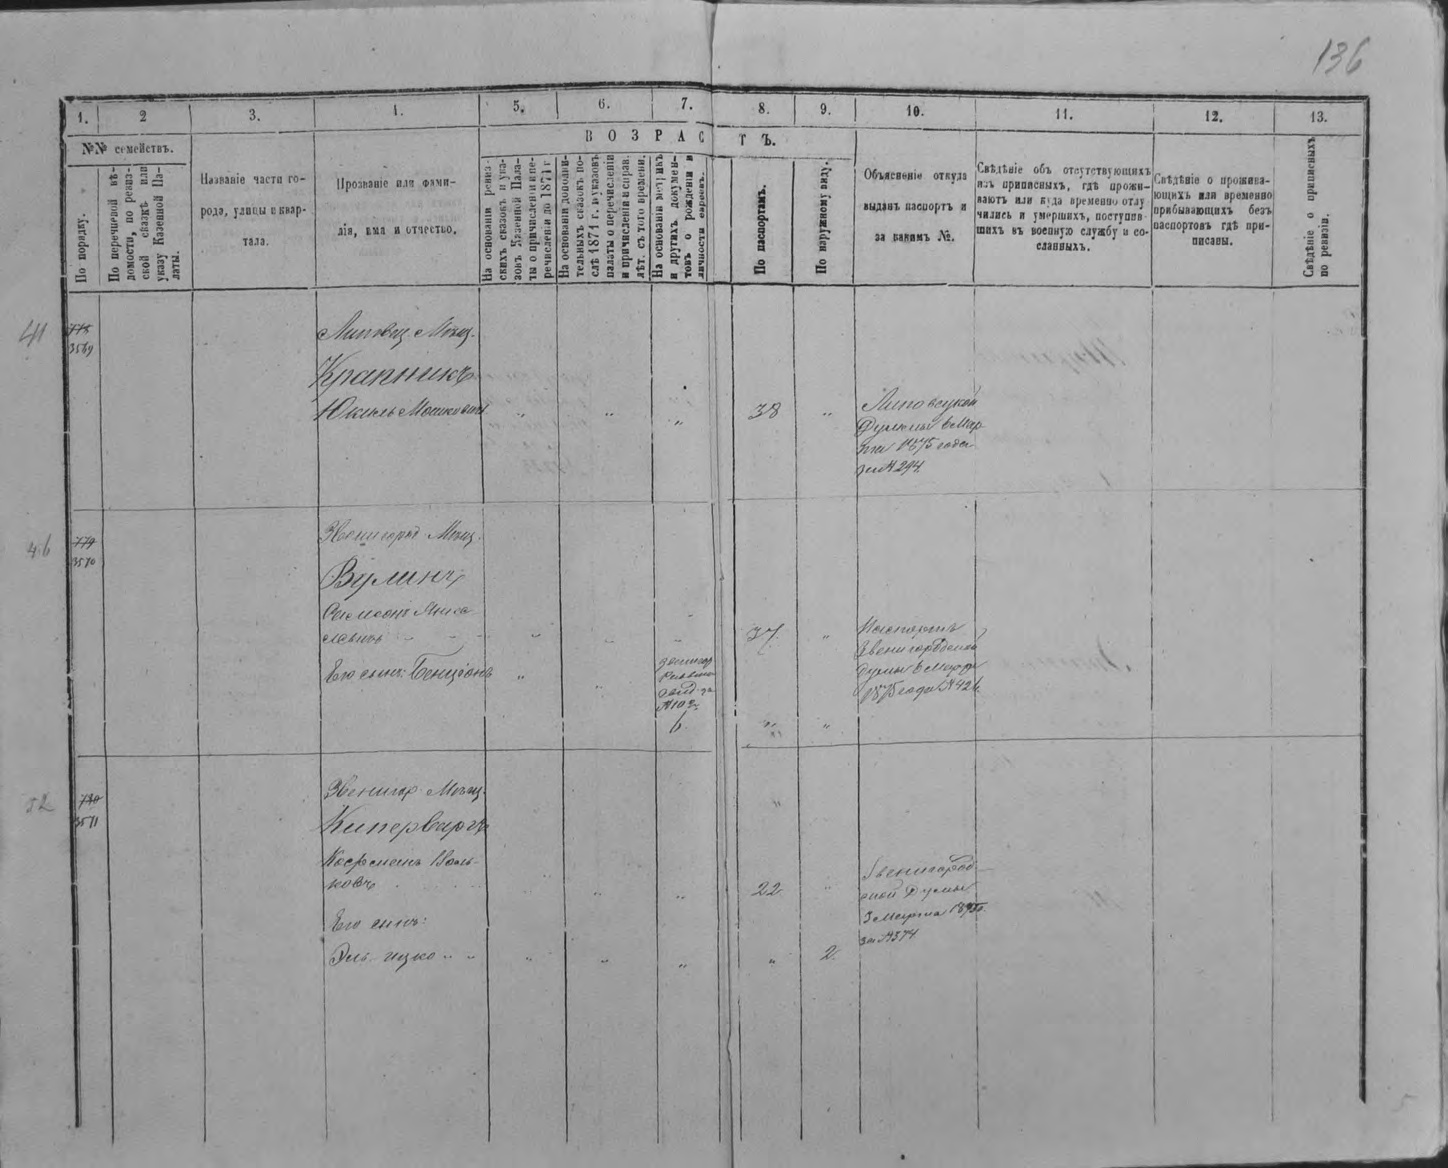 136
1. 2 3. 4. 5. 6. 7. 8. 9. 10. 11. 12. 13.
№№ семействъ.
По порядку.
По перечневой вѣ-
домости, по ревиз-
ской сказкѣ или
указу Казенной Па-
латы.
Названіе части го-
рода, улицы и квар-
тала.
Прозваніе или фами-
лія, имя и отчество.
ВОЗРАСТЪ.
На основаніи ревиз-
скихъ сказокъ и ука-
зовъ Казенной Пала-
ты о причисленіи и пе-
речисленіи до 1871 г.
На основаніи дополни-
тельныхъ сказокъ по-
слѣ 1871 г. и указовъ
палаты о перечисленіи
и причисленіи и справ.
лѣт. съ того времени.
На основаніи метрикъ
и другихъ докумен-
товъ о рожденіи и
личности евреевъ.
По паспортамъ.
По наружному виду.
Объясненіе откуда
выданъ паспортъ и
за какимъ №.
Свѣдѣніе объ отсутствующихъ
изъ приписныхъ, гдѣ прожи-
ваютъ или куда временно отлу
чились и умершихъ, поступив-
шихъ въ военную службу и со-
сланныхъ.
Свѣдѣніе о прожива-
ющихъ или временно
прибывающихъ безъ
паспортовъ гдѣ при-
писаны.
Свѣдѣніе о приписныхъ
по ревизіи.
41
3569
Липовец. Мѣщ.
Крапникъ
Юкиль Мошковичъ „ „ „ 38 „
Липовецкой
Думы в Мар
та 1875 года
за №294.
46
779
3570
Звенигород Мѣщ.
Вулихъ
37 „
Его сынъ: Бенціонъ „ „
6. „ „
Паспортъ
Звенигородской
Думы 6 Марта
1875 года №426.
52
780
3571
Звенигор Мѣщ.
Кипервартъ
Воль-
ковъ „ „ 22 „
Звенигород-
ской Думы
3 Марта 1875 г.
за №374
Его сынъ:
Эль-ицко „ „ „ „ 2.